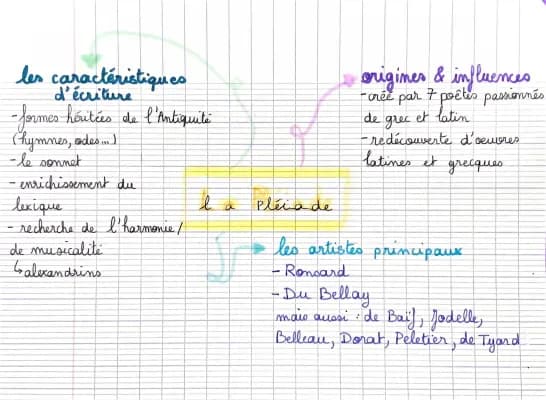 La Pléiade
les caractéristiques
d'écriture
-formes héritées de l'Antiquité
(hymnes, odes...)
-le sonnet
- enrichissement du
lexique
- recherche de l'harmonie/
de musicalité
↳alexandrins
origines & influences
-créé par 7 poètes passionnés
de grec et latin
-redécouverte d'oeuvres
latines et grecques
les artistes principaux
- Ronsard
- Du Bellay
mais aussi : de Baïf, Jodelle,
Belleau, Dorat, Peletier, de Tyard